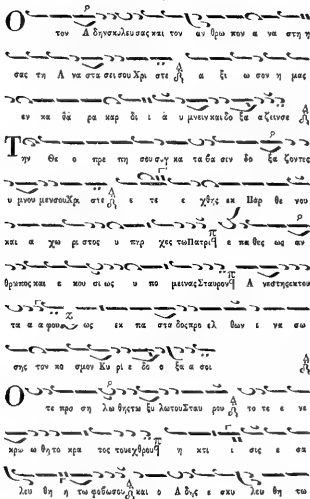 Ο τον Α δην σκυλευ σας και τον αν θρω πον α να στη η
σας τη Α να στα σει σου Χρι στε α ξι ω σον η μας
εν κα θα ρα καρ δι ι α υ μνειν και δο ξα α ζειν σε
Την Θε ο πρε πη σου συγ κα τα βα σιν δο ξα ζοντες
υ μνου μεν σου Χρι στε ε τε ε χθης εκ Παρ θε νου
και α χω ρι στος υ πηρ χες τω Πατρι ε πα θες ως αν
θρωπος και ε κου σι ως υ πο μεινας Σταυρον Α νεστης εκ του
τα α α φου ως εκ πα στα δος προ ελ θων ι να σω
σης τον κο σμον Κυ ρι ε δο ο ξα α σοι
Ο τε προ ση λω θης τω ξυ λω του Σταυ ρου το τε ε νε
κρω ω θη το κρα τος του εχθρου η κτι ι σις ε σα
λευ θη η τω φοβω σου και ο Α δης ε σκυ λευ θη τω